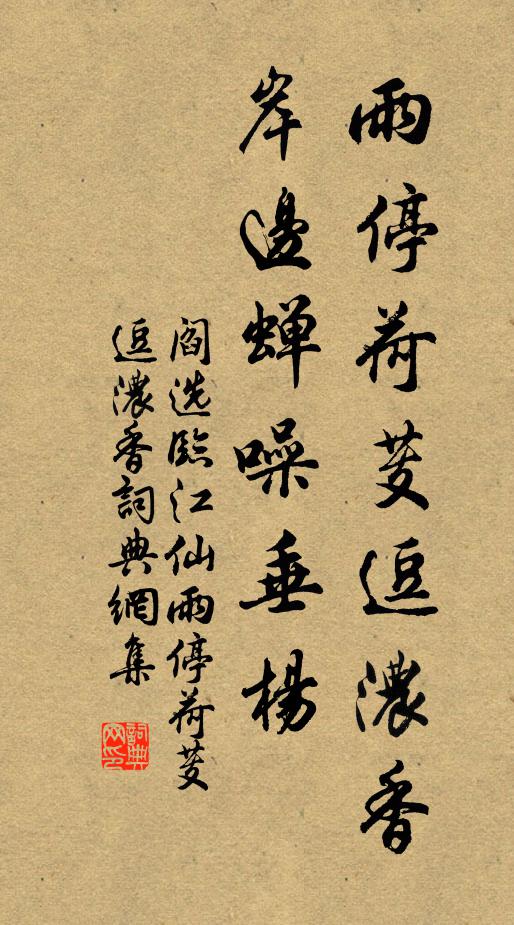 雨停荷芰逗濃香
岸邊蟬噪垂楊
閻选臨江仙雨停荷芰
逗濃香詞典網集
詞典网印